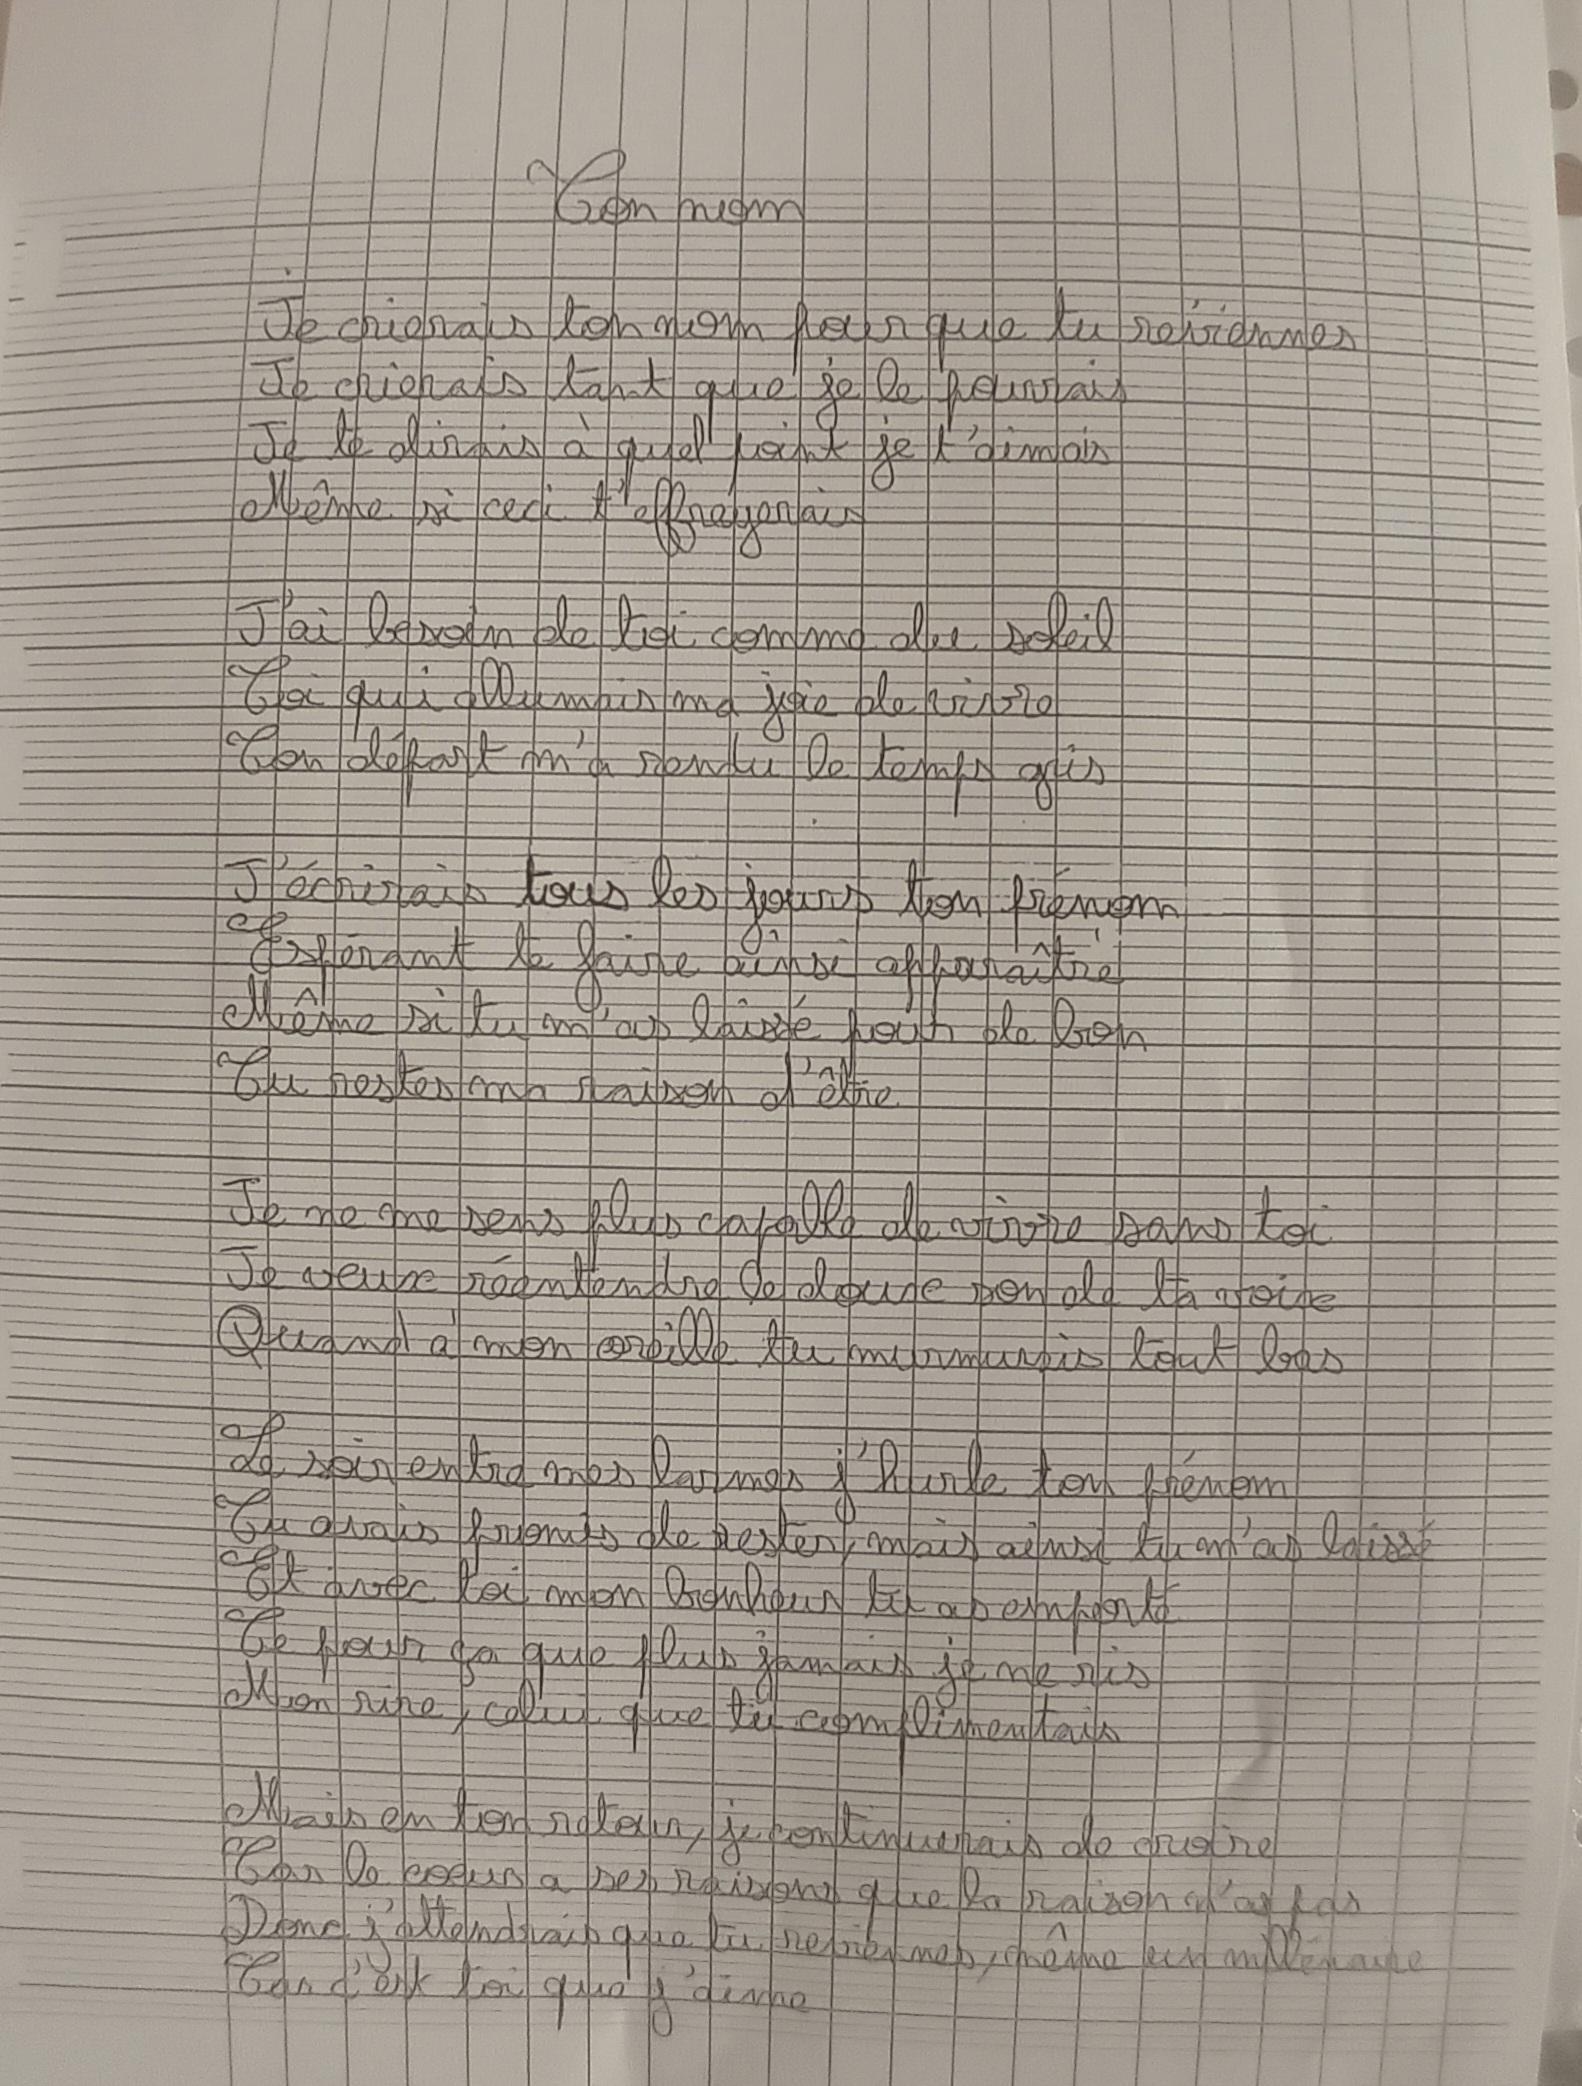 Ton nom
Je crierais ton nom pour que tu reviennes
Je crierais tant que je le pourrais
Je te dirais à quel point je t'aimais
Même si ceci t'effrayerais
J'ai besoin de toi comme du soleil
Toi qui allumais ma joie de vivre
Ton départ m'a rendu le temps gris
J'écrirais tous les jours ton prénom
Espérant te faire ainsi apparaître
Même si tu m'as laissé pour de bon
Tu restes ma raison d'être
Je ne me sens plus capable de vivre sans toi
Je veux réentendre le doux son de ta voix
Quand à mon oreille tu murmurais tout bas
Le soir entre mes larmes j'hurle ton prénom
Tu avais promis de rester, mais ainsi tu m'as laissé
Et avec toi mon bonheur tu as emporté
Ce pour ça que plus jamais je ne ris
Mon rire, celui que tu complimentais
Mais en ton retour, je continuerais de croire
Car le coeur a ses raisons que la raison n'as pas
Donc j'attendrais que tu reviennes, même un millénaire
Car c'est toi que j'aime